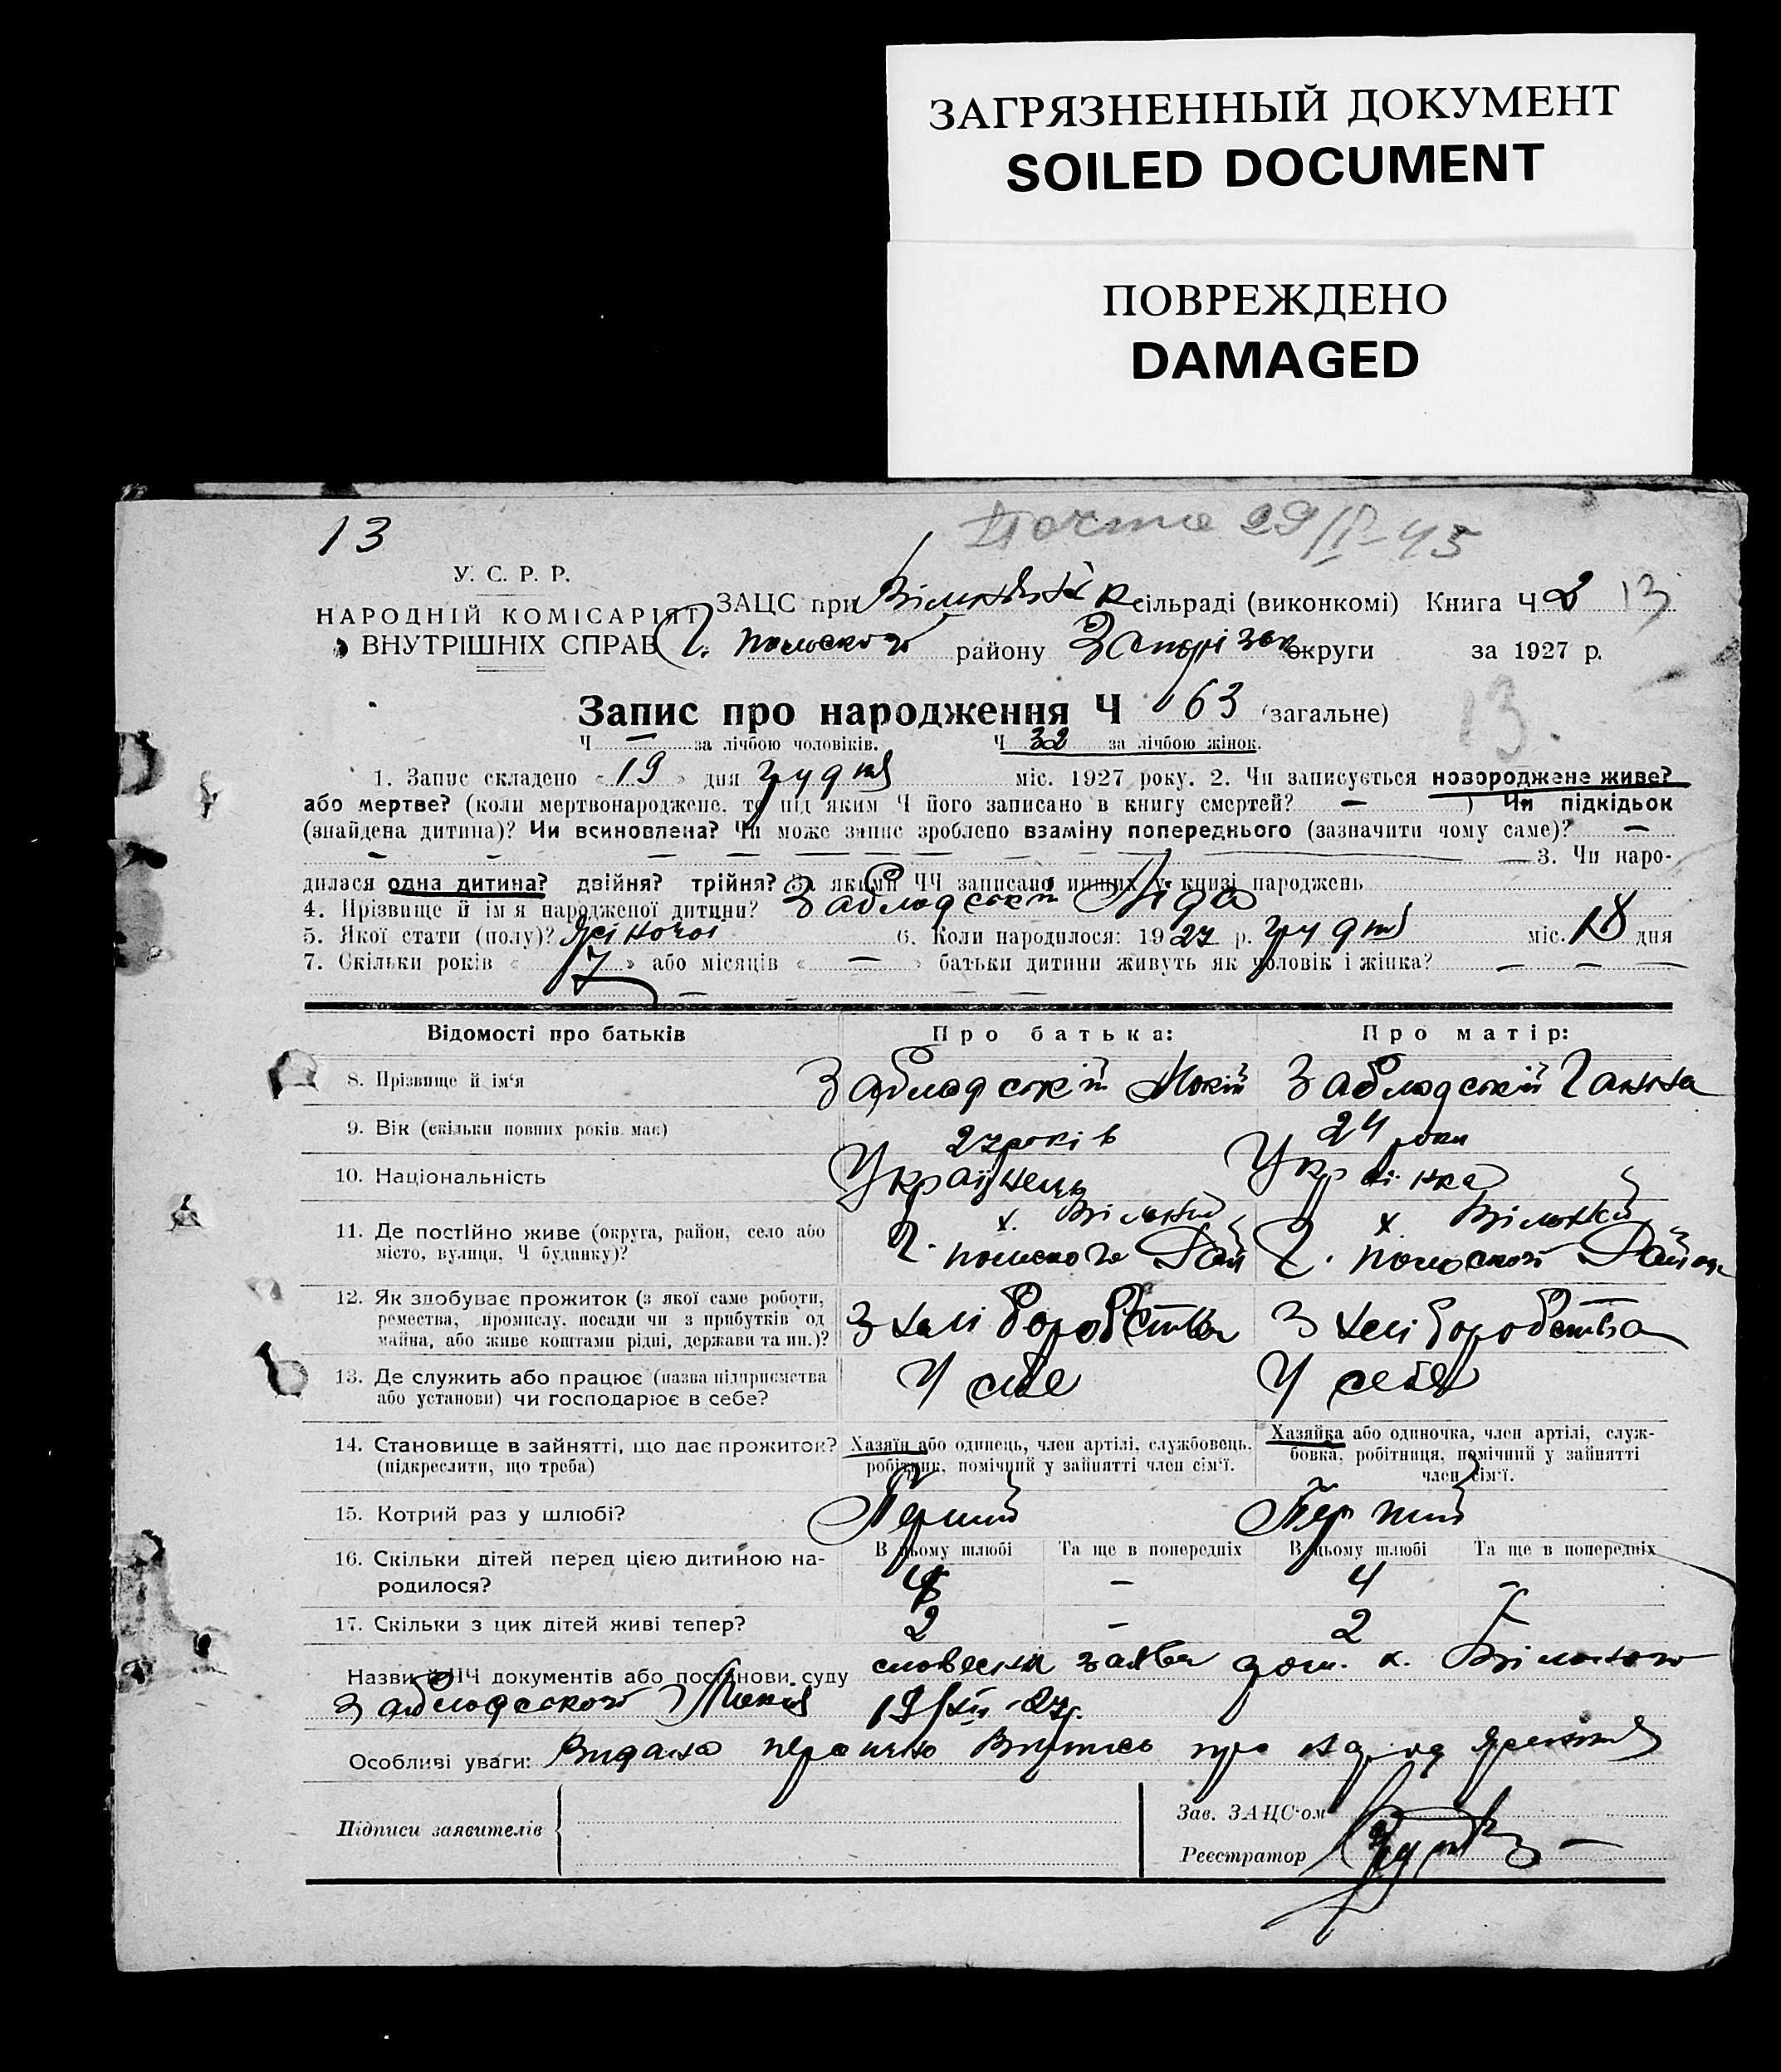 ЗАГРЯЗНЕННЫЙ ДОКУМЕНТ
SOILED DOCUMENT
ПОВРЕЖДЕНО
DAMAGED
13
29/II-45
У. С. Р. Р.
НАРОДНІЙ КОМІСАРІЯТ
ВНУТРІШНІХ СПРАВ
ЗАЦС при сільраді (виконкомі) Книга Ч 2 13
Г. польского району Запорізьк округи за 1927 р.
Запис про народження Ч 63 (загальне)
13
Ч — за лічбою чоловіків. Ч 32 за лічбою жінок.
1. Запис складено «19» дня грудня міс. 1927 року. 2. Чи записується новороджене живе?
або мертве? (коли мертвонароджене, то під яким Ч його записано в книгу смертей? — ) Чи підкідьок
(знайдена дитина)? Чи всиновлена? Чи може запис зроблено взаміну попереднього (зазначити чому саме)? —
3. Чи наро-
дилася одна дитина? двійня? трійня? За якими ЧЧ записано инших у книзі народжень
4. Прізвище й ім'я народженої дитини? Заблодський Ліда
5. Якої стати (полу)? Жіночої 6. Коли народилося: 1927 р. грудня міс. 18 дня
7. Скільки років «7» або місяців « — » батьки дитини живуть як чоловік і жінка? — — —
Відомості про батьків Про батька: Про матір:
8. Прізвище й ім'я Заблодській Мокій Заблодській Ганна
9. Вік (скільки повних років має) 27 років 24 роки
10. Національність Українець Українка
11. Де постійно живе (округа, район, село або х. Вільний х. Вільний
місто, вулиця, Ч будинку)? Г. польського Рай Г. польского Район
12. Як здобуває прожиток (з якої саме роботи,
ремества, промислу, посади чи з прибутків од З хліборобства З хліборобства
майна, або живе коштами рідні, держави та ин.)?
13. Де служить або працює (назва підприємства У себе У себе
або установи) чи господарює в себе?
14. Становище в зайнятті, що дає прожиток? Хазяїн або одинець, член артілі, службовець, Хазяйка або одиночка, член артілі, служ-
(підкреслити, що треба) робітник, помічний у зайнятті член сім'ї. бовка, робітниця, помічний у зайнятті
член сім'ї.
15. Котрий раз у шлюбі? Перший Перший
16. Скільки дітей перед цією дитиною на- В цьому шлюбі Та ще в попередніх В цьому шлюбі Та ще в попередніх
родилося? 4 — 4 —
17. Скільки з цих дітей живі тепер? 2 — 2 —
Назви й ЧЧ документів або постанови суду словесна заява х. Вільного
Заблодського Мокія 19/XII-27р.
Особливі уваги: Видана первична Випись про
Підписи заявителів
Зав. ЗАЦС'ом
Реєстратор